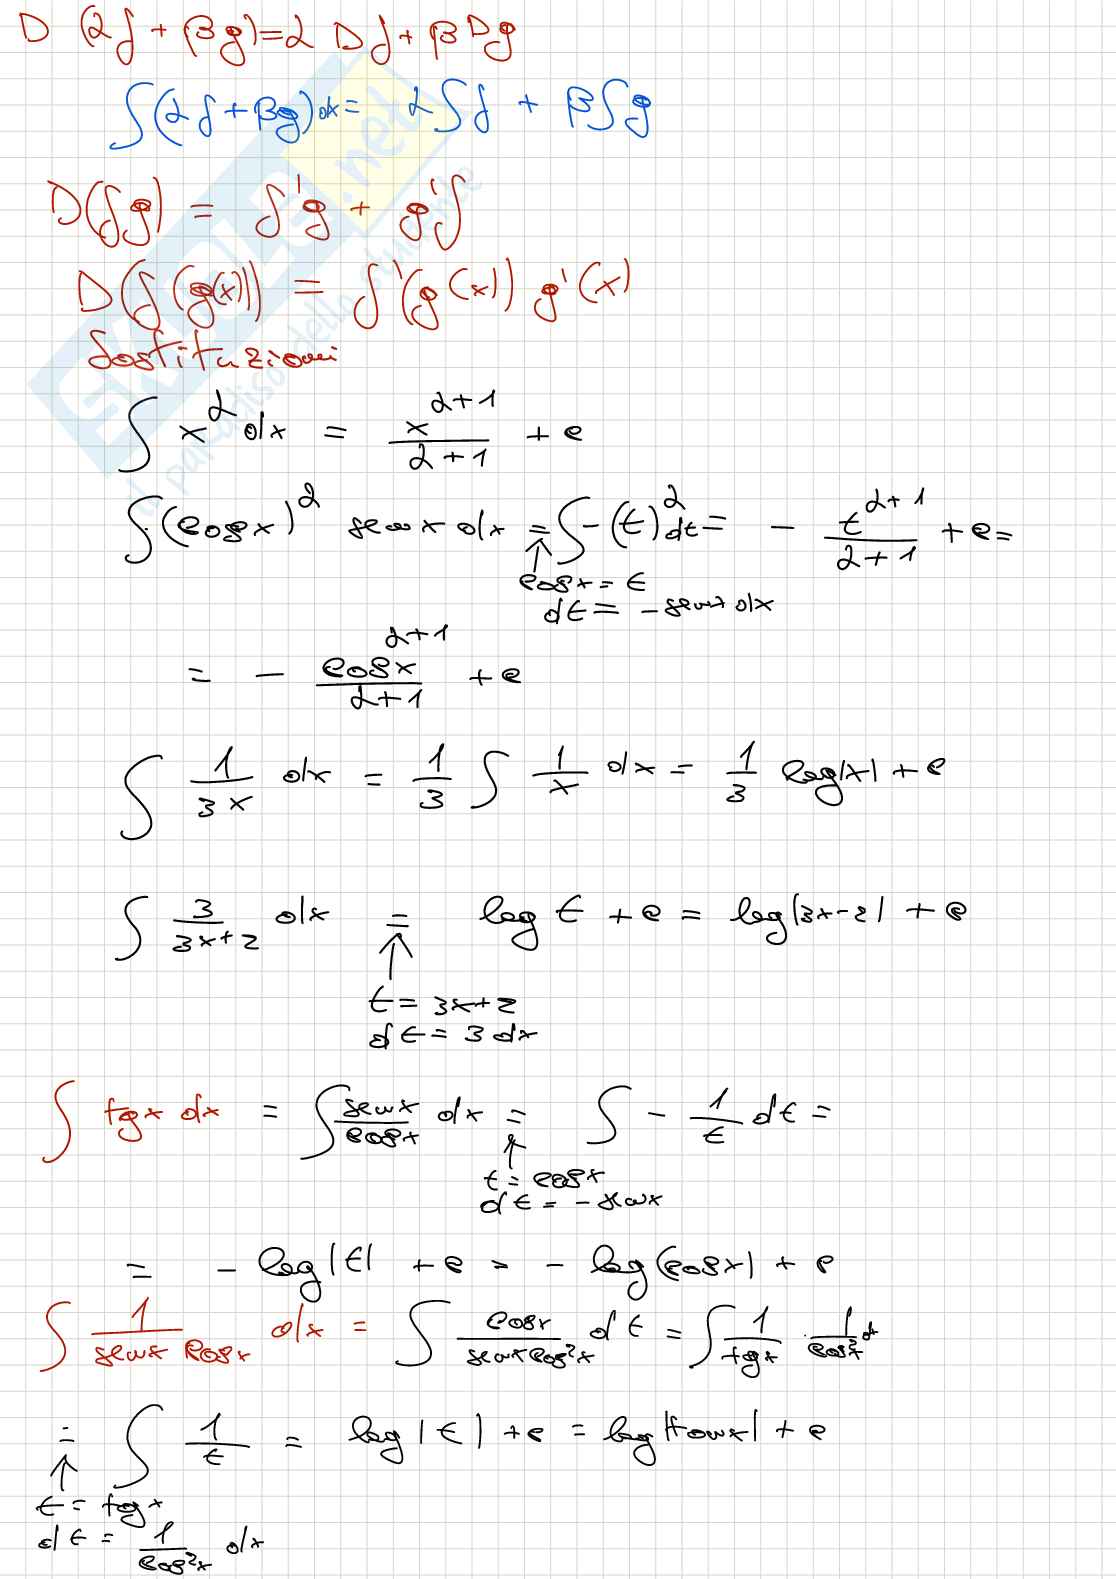 D (αf + βg) = α Df + β Dg
∫(αf + βg)dx = α∫f + β∫g
D(fg) = f'g + g'f
D(f(g(x))) = f'(g(x)) g'(x)
Sostituzioni
∫ x^α dx = x^(α+1)/(α+1) + c
∫(cos x)^α sen x dx = ∫ -(t)^α dt = - t^(α+1)/(α+1) + c =
↑ cos x = t
dt = - sen x dx
= - cos x^(α+1)/(α+1) + c
∫ 1/(3x) dx = 1/3 ∫ 1/x dx = 1/3 log|x| + c
∫ 3/(3x+2) dx = log t + c = log|3x-2| + c
↑
t = 3x+2
dt = 3 dx
∫ tg x dx = ∫ sen x/cos x dx = ∫ - 1/t dt =
↑
t = cos x
dt = - sen x
= - log|t| + c = - log|cos x| + c
∫ 1/(sen x cos x) dx = ∫ cos x/(sen x cos²x) dt = ∫ 1/tg x · 1/cos²x dx
= ∫ 1/t = log|t| + c = log|tan x| + c
↑
t = tg x
dt = 1/cos²x dx
SKUOLA.net
il paradiso dello studente